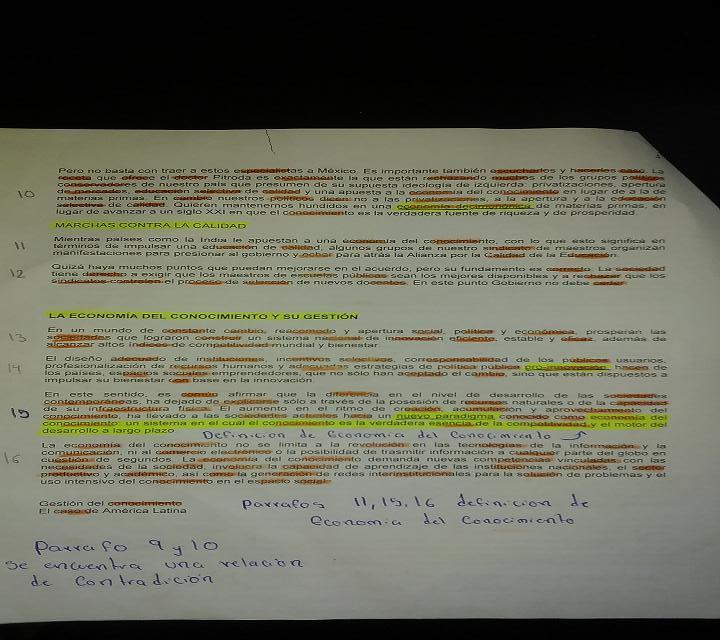 Pero no basta con traer a estos especialistas a México. Es importante también escucharlos y hacerles caso. La
receta que ofrece el doctor Pitroda es exactamente la que están rechazando muchos de los grupos políticos
conservadores de nuestro país que presumen de su supuesta ideología de izquierda: privatizaciones, apertura
10 de mercados, educación selectiva de calidad y una apuesta a la economía del conocimiento en lugar de a la de
materias primas. En cambio nuestros políticos dicen no a las privatizaciones, a la apertura y a la educación
selectiva de calidad. Quieren mantenernos hundidos en una economía decimonónica de materias primas, en
lugar de avanzar a un siglo XXI en que el conocimiento es la verdadera fuente de riqueza y de prosperidad.
MARCHAS CONTRA LA CALIDAD
11 Mientras países como la India le apuestan a una economía del conocimiento, con lo que esto significa en
términos de impulsar una educación de calidad, algunos grupos de nuestro sindicato de maestros organizan
manifestaciones para presionar al gobierno y echar para atrás la Alianza por la Calidad de la Educación.
12 Quizá haya muchos puntos que puedan mejorarse en el acuerdo, pero su fundamento es correcto. La sociedad
tiene derecho a exigir que los maestros de escuelas públicas sean los mejores disponibles y a rechazar que los
sindicatos controlen el proceso de selección de nuevos docentes. En este punto Gobierno no debe ceder.
LA ECONOMÍA DEL CONOCIMIENTO Y SU GESTIÓN
13 En un mundo de constante cambio, reacomodo y apertura social, política y económica, prosperan las
sociedades que lograron construir un sistema nacional de innovación eficiente, estable y eficaz, además de
alcanzar altos índices de competitividad mundial y bienestar.
14 El diseño adecuado de instituciones, incentivos selectivos, corresponsabilidad de los públicos usuarios,
profesionalización de recursos humanos y adecuadas estrategias de política pública pro-innovación, hacen de
los países, espacios cuales emprendedores, que no sólo han aceptado el cambio, sino que están dispuestos a
impulsar su bienestar con base en la innovación.
15 En este sentido, es común afirmar que la diferencia en el nivel de desarrollo de las sociedades
contemporáneas, ha dejado de explicarse sólo a través de la posesión de recursos naturales o de la capacidad
de su infraestructura física. El aumento en el ritmo de creación, acumulación y aprovechamiento del
conocimiento, ha llevado a las sociedades actuales hacia un nuevo paradigma conocido como economía del
conocimiento: un sistema en el cual el conocimiento es la verdadera esencia de la competitividad y el motor del
desarrollo a largo plazo.
Definicion de Economia del Conocimiento
16 La economía del conocimiento no se limita a la revolución en las tecnologías de la información y la
comunicación, ni al comercio electrónico o la posibilidad de trasmitir información a cualquier parte del globo en
cuestión de segundos. La economía del conocimiento demanda nuevas competencias vinculadas con las
necesidades de la sociedad, involucra la capacidad de aprendizaje de las instituciones nacionales, el sector
productivo y académico, así como la generación de redes interinstitucionales para la solución de problemas y el
uso intensivo del conocimiento en el espacio social.
Gestión del conocimiento
El caso de América Latina
Parrafos 11, 15, 16 definicion de
Economia del Conocimiento
Parrafo 9 y 10
se encuentra una relacion
de contradición